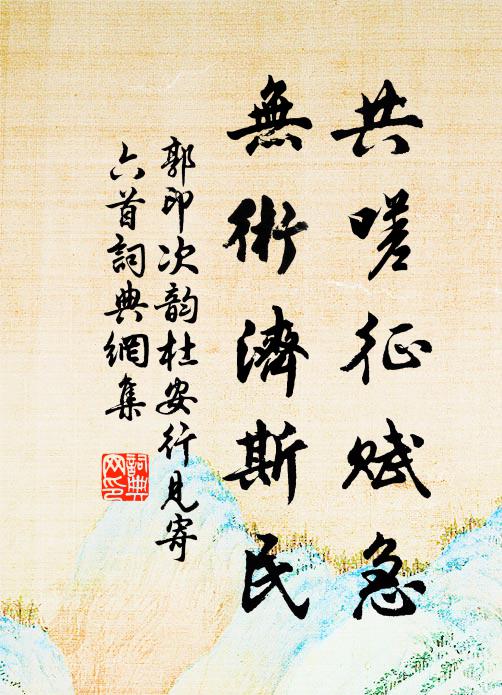 共嗟征赋急
無術濟斯民
郭印次韵杜安行見寄
六首詞典網集
詞典
网印